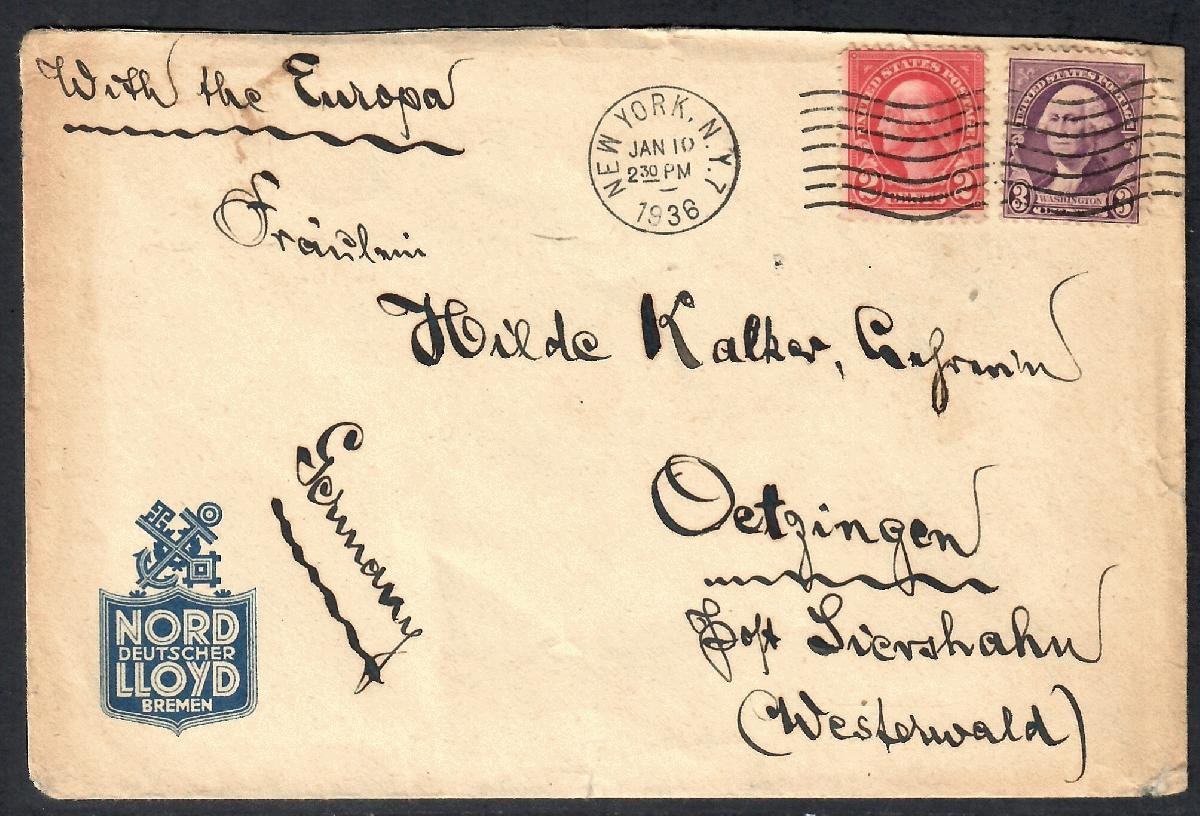 With the Europa
NEW YORK, N.Y. 7
JAN 10
2 30 PM
1936
UNITED STATES POSTAGE
2 CENTS 2
UNITED STATES POSTAGE
3 WASHINGTON 3
Fräulein
Hilde Kalker, Lehrerin
Oetzingen
Post Siershahn
(Westerwald)
Germany
NORD
DEUTSCHER
LLOYD
BREMEN